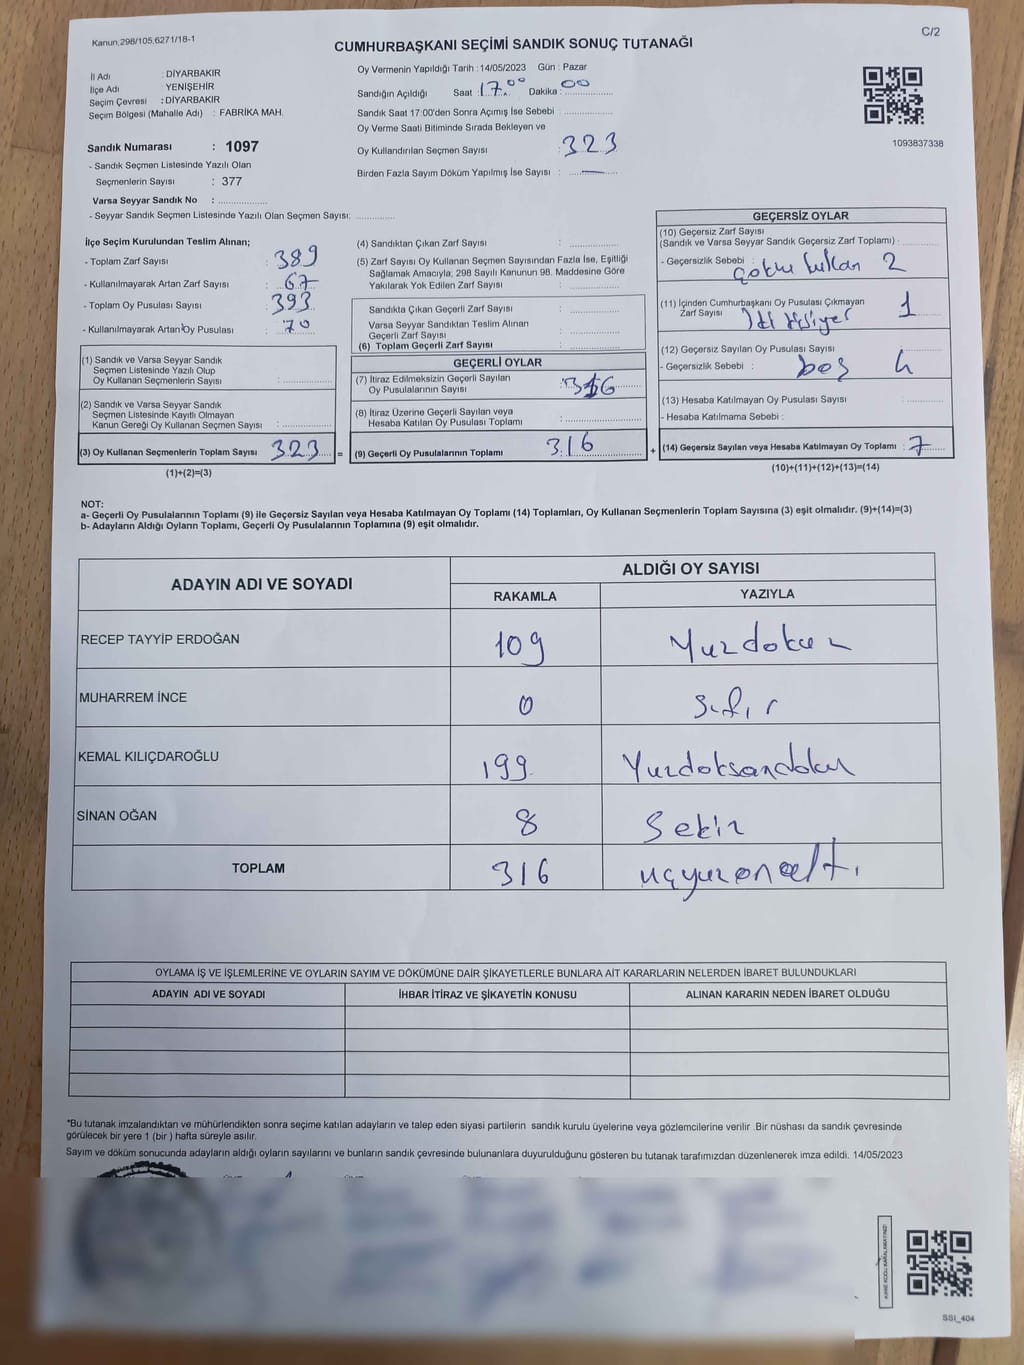 Kanun,298/105,6271/18-1
C/2
CUMHURBAŞKANI SEÇİMİ SANDIK SONUÇ TUTANAĞI
İl Adı : DİYARBAKIR
İlçe Adı YENİŞEHİR
Seçim Çevresi : DİYARBAKIR
Seçim Bölgesi (Mahalle Adı) : FABRİKA MAH.
Sandık Numarası : 1097
- Sandık Seçmen Listesinde Yazılı Olan
Seçmenlerin Sayısı : 377
Varsa Seyyar Sandık No :
- Seyyar Sandık Seçmen Listesinde Yazılı Olan Seçmen Sayısı:
Oy Vermenin Yapıldığı Tarih : 14/05/2023 Gün : Pazar
Sandığın Açıldığı Saat : 17.00 Dakika : 00
Sandık Saat 17:00'den Sonra Açımış İse Sebebi :
Oy Verme Saati Bitiminde Sırada Bekleyen ve
Oy Kullandırılan Seçmen Sayısı : 323
Birden Fazla Sayım Döküm Yapılmış İse Sayısı : —
1093837338
İlçe Seçim Kurulundan Teslim Alınan;
- Toplam Zarf Sayısı : 389
- Kullanılmayarak Artan Zarf Sayısı : 67
- Toplam Oy Pusulası Sayısı : 393
- Kullanılmayarak Artan Oy Pusulası : 70
(1) Sandık ve Varsa Seyyar Sandık
Seçmen Listesinde Yazılı Olup
Oy Kullanan Seçmenlerin Sayısı :
(2) Sandık ve Varsa Seyyar Sandık
Seçmen Listesinde Kayıtlı Olmayan
Kanun Gereği Oy Kullanan Seçmen Sayısı :
(3) Oy Kullanan Seçmenlerin Toplam Sayısı 323 =
(1)+(2)=(3)
(4) Sandıktan Çıkan Zarf Sayısı :
(5) Zarf Sayısı Oy Kullanan Seçmen Sayısından Fazla İse, Eşitliği
Sağlamak Amacıyla; 298 Sayılı Kanunun 98. Maddesine Göre
Yakılarak Yok Edilen Zarf Sayısı :
Sandıkta Çıkan Geçerli Zarf Sayısı :
Varsa Seyyar Sandıktan Teslim Alınan
Geçerli Zarf Sayısı :
(6) Toplam Geçerli Zarf Sayısı :
GEÇERLİ OYLAR
(7) İtiraz Edilmeksizin Geçerli Sayılan
Oy Pusulasının Sayısı : 316
(8) İtiraz Üzerine Geçerli Sayılan veya
Hesaba Katılan Oy Pusulası Toplamı :
(9) Geçerli Oy Pusulalarının Toplamı 316 +
GEÇERSİZ OYLAR
(10) Geçersiz Zarf Sayısı
(Sandık ve Varsa Seyyar Sandık Geçersiz Zarf Toplamı) :
- Geçersizlik Sebebi : 2
(11) İçinden Cumhurbaşkanı Oy Pusulası Çıkmayan
Zarf Sayısı 1
(12) Geçersiz Sayılan Oy Pusulası Sayısı
- Geçersizlik Sebebi : boş 4
(13) Hesaba Katılmayan Oy Pusulası Sayısı :
- Hesaba Katılmama Sebebi :
(14) Geçersiz Sayılan veya Hesaba Katılmayan Oy Toplamı : 7
(10)+(11)+(12)+(13)=(14)
NOT:
a- Geçerli Oy Pusulalarının Toplamı (9) ile Geçersiz Sayılan veya Hesaba Katılmayan Oy Toplamı (14) Toplamları, Oy Kullanan Seçmenlerin Toplam Sayısına (3) eşit olmalıdır. (9)+(14)=(3)
b- Adayların Aldığı Oyların Toplamı, Geçerli Oy Pusulalarının Toplamına (9) eşit olmalıdır.
ADAYIN ADI VE SOYADI
ALDIĞI OY SAYISI
RAKAMLA YAZIYLA
RECEP TAYYİP ERDOĞAN 109 Yuzdokuz
MUHARREM İNCE 0 Sıfır
KEMAL KILIÇDAROĞLU 199 Yuzdoksandokuz
SİNAN OĞAN 8 Sekiz
TOPLAM 316 uçyuzonaltı
OYLAMA İŞ VE İŞLEMLERİNE VE OYLARIN SAYIM VE DÖKÜMÜNE DAİR ŞİKAYETLERLE BUNLARA AİT KARARLARIN NELERDEN İBARET BULUNDUKLARI
ADAYIN ADI VE SOYADI İHBAR İTİRAZ VE ŞİKAYETİN KONUSU ALINAN KARARIN NEDEN İBARET OLDUĞU
*Bu tutanak imzalandıktan ve mühürlendikten sonra seçime katılan adayların ve talep eden siyasi partilerin sandık kurulu üyelerine veya gözlemcilerine verilir .Bir nüshası da sandık çevresinde
görülecek bir yere 1 (bir ) hafta süreyle asılır.
Sayım ve döküm sonucunda adayların aldığı oyların sayılarını ve bunların sandık çevresinde bulunanlara duyurulduğunu gösteren bu tutanak tarafımızdan düzenlenerek imza edildi. 14/05/2023
SSI_404